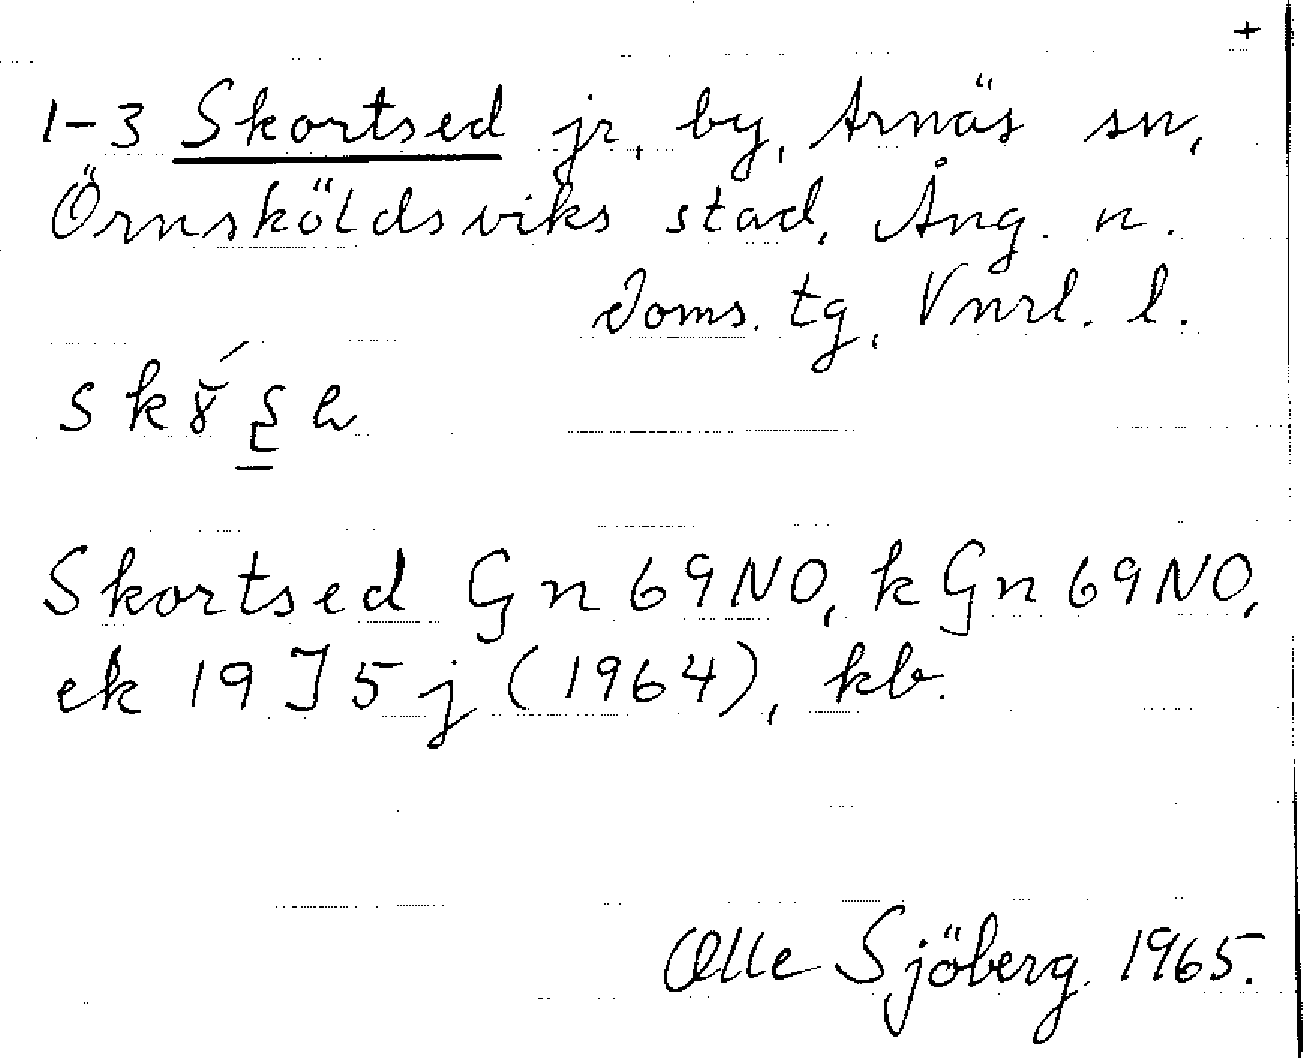 +
1-3 Skortsed jr, by, Arnäs sn,
Örnsköldsviks stad, Ång. n.
doms. tg, Vnrl. l.
Skortsed Gn 69NO, k Gn 69NO,
ek 19J5j (1964), kb.
Olle Sjöberg 1965.